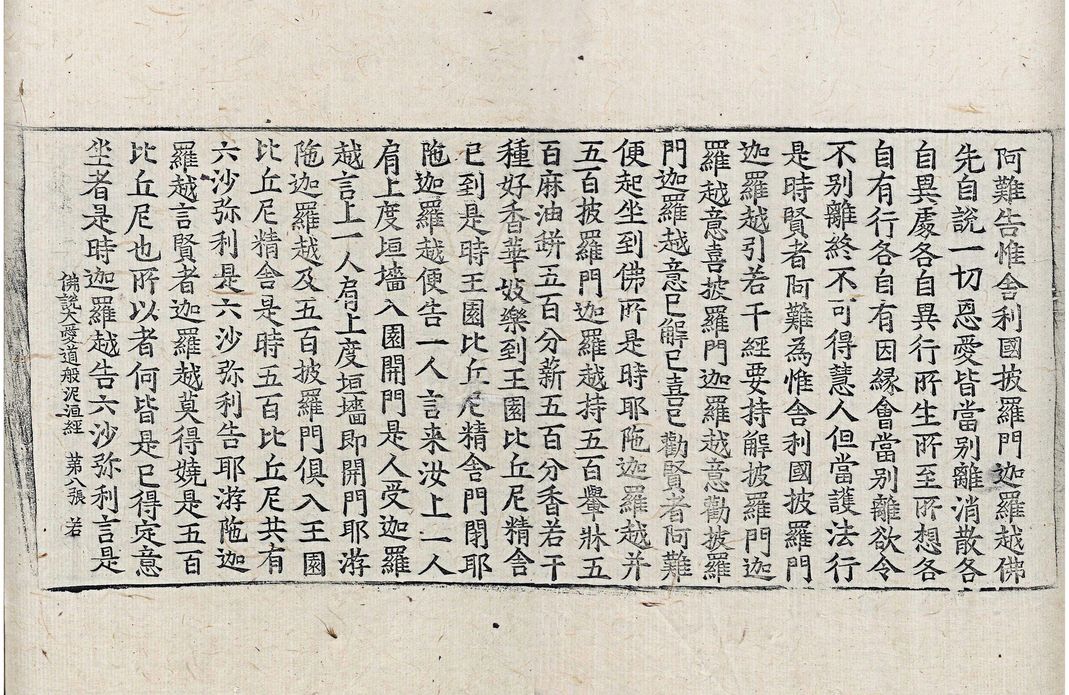 阿難告惟舍利國披羅門迦羅越佛
先自說一切恩愛皆當别離消散各
自異處各自異行所生所至所想各
自有行各自有因緣會當别離欲令
不别離終不可得慧人但當護法行
是時賢者阿難為惟舍利國披羅門
迦羅越引若干經要持解披羅門迦
羅越意喜披羅門迦羅越意勸披羅
門迦羅越意已解已喜已勸賢者阿難
便起坐到佛所是時耶陁迦羅越并
五百披羅門迦羅越持五百轝牀五
百麻油缾五百分薪五百分香若干
種好香華妓樂到王園比丘尼精舍
已到是時王園比丘尼精舍門閉耶
陁迦羅越便告一人言来汝上一人
肩上度垣墻入園開門是人受迦羅
越言上一人肩上度垣墻即開門耶游
陁迦羅越及五百披羅門俱入王園
比丘尼精舍是時五百比丘尼共有
六沙弥利是六沙弥利告耶游陁迦
羅越言賢者迦羅越莫得嬈是五百
比丘尼也所以者何皆是已得定意
坐者是時迦羅越告六沙弥利言是
佛說大愛道般泥洹經 第八張 若